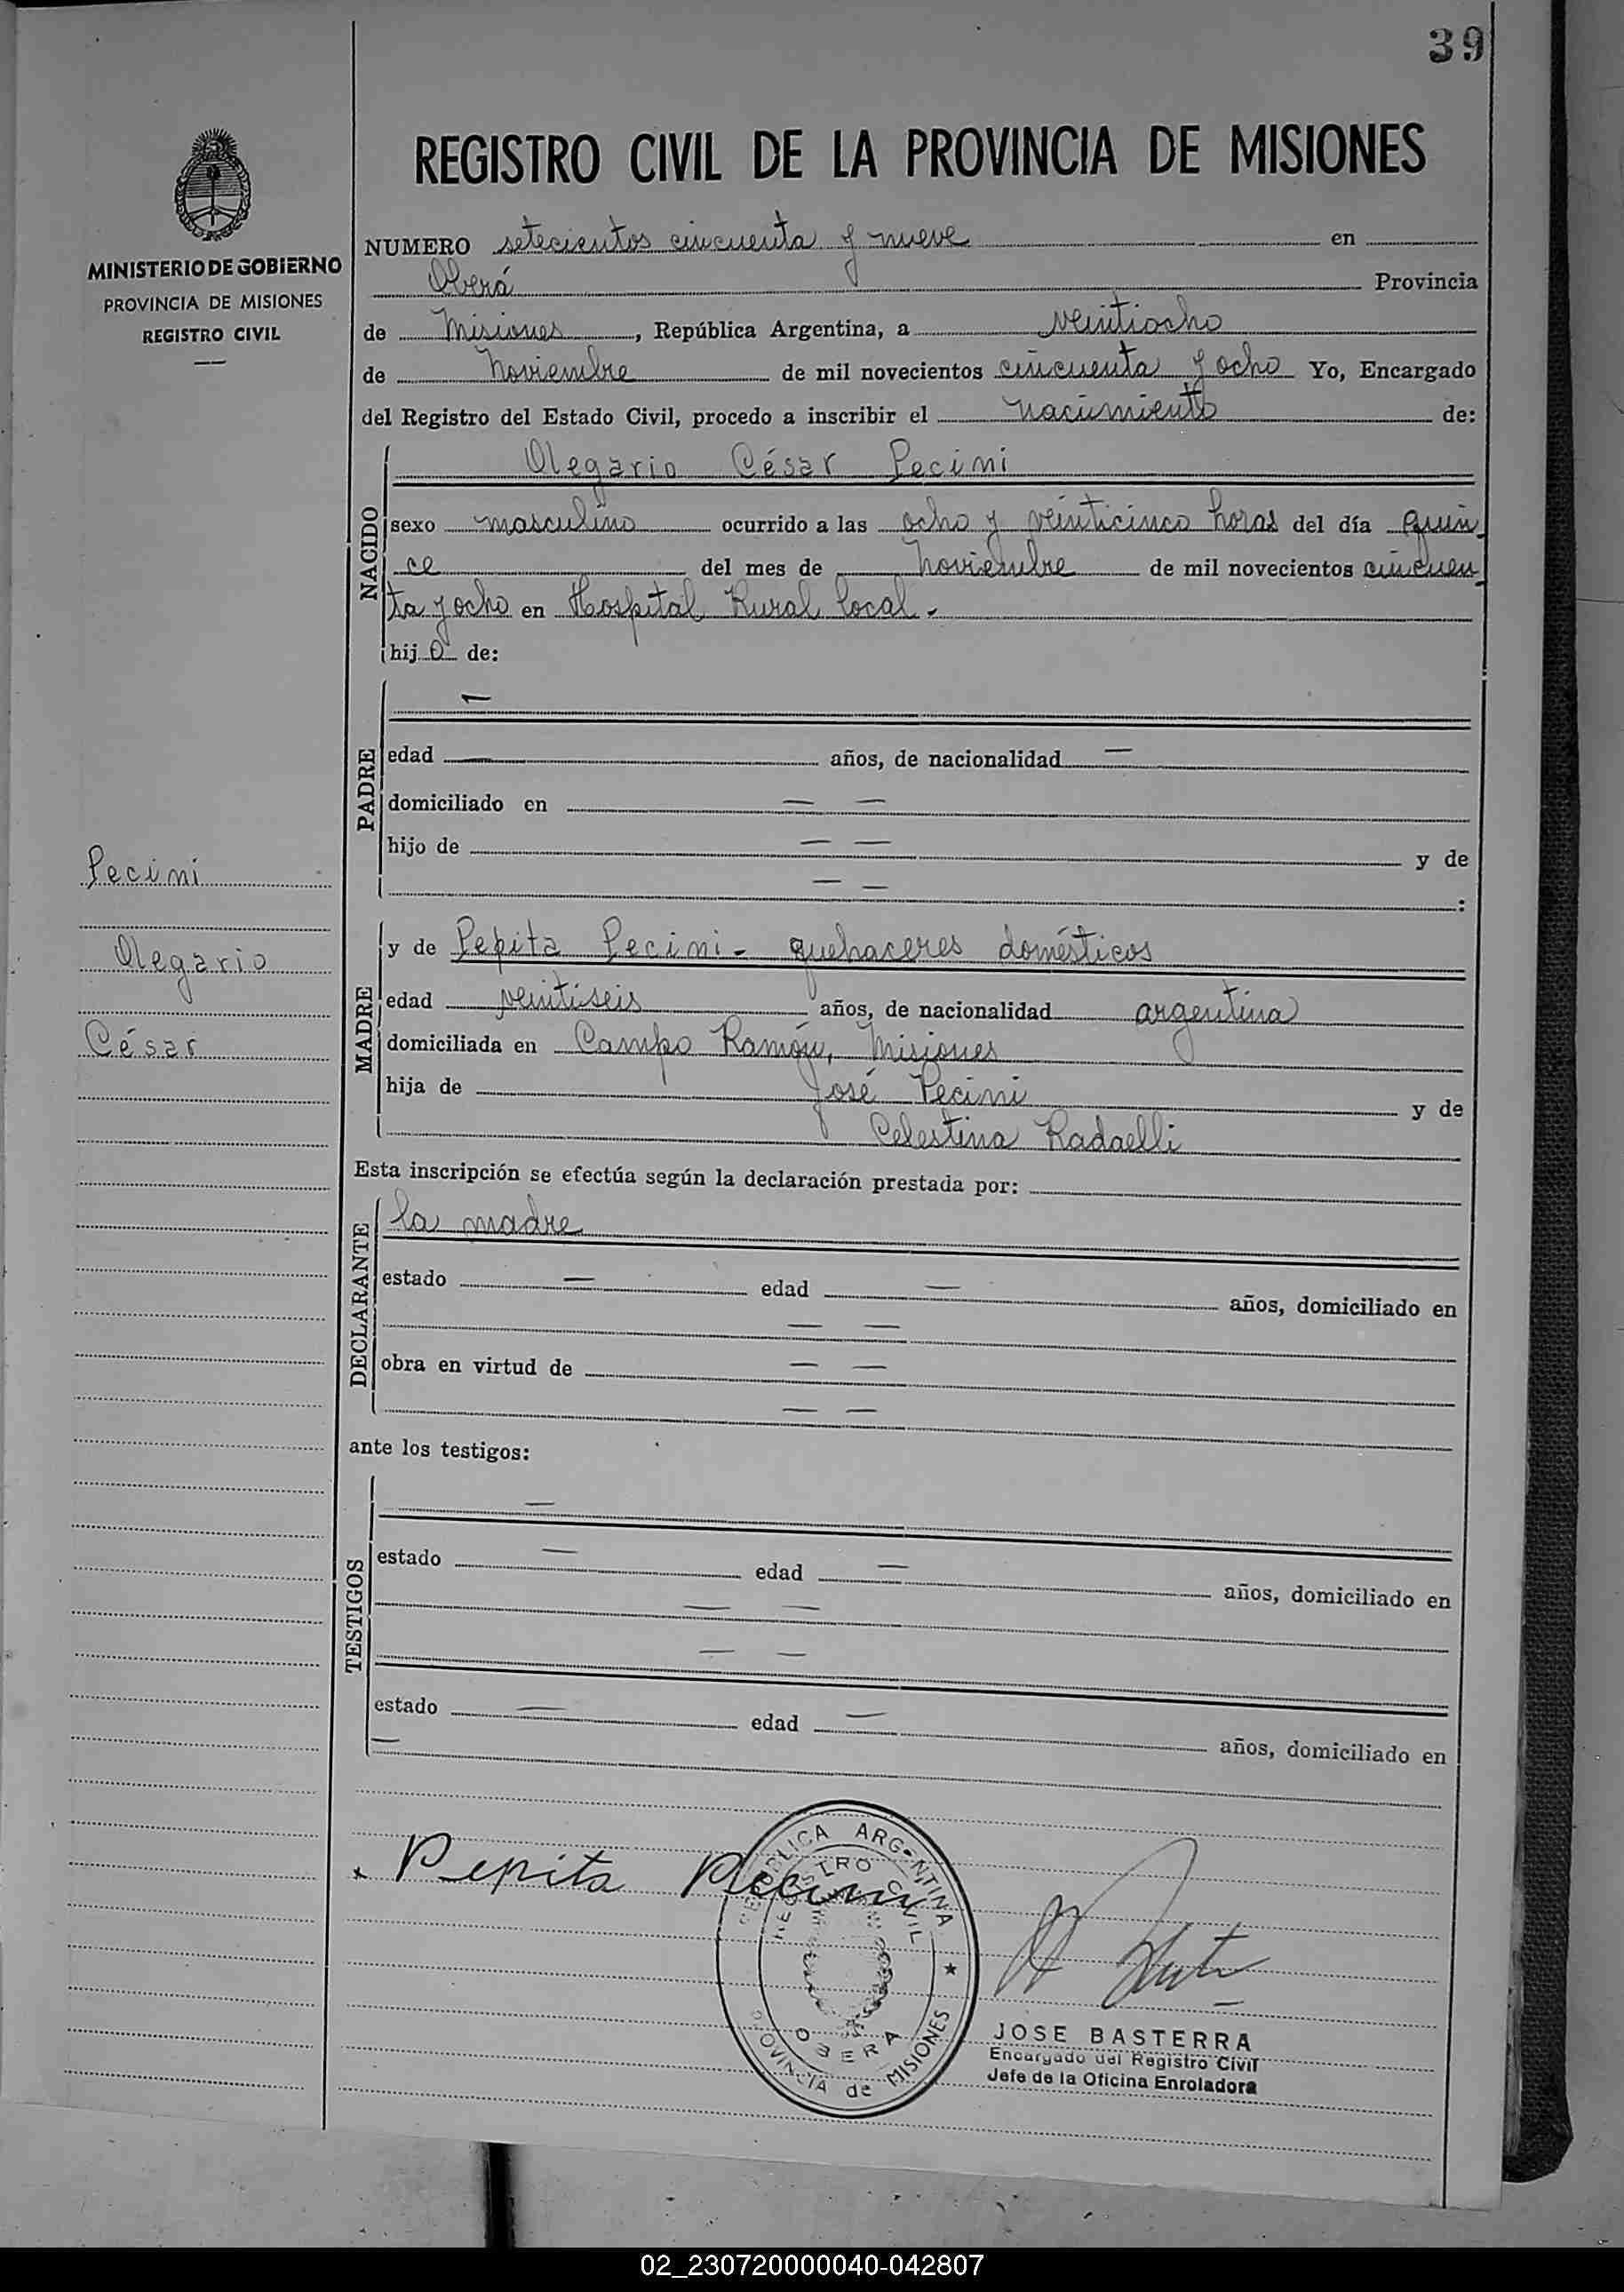 39
REGISTRO CIVIL DE LA PROVINCIA DE MISIONES
MINISTERIO DE GOBIERNO
PROVINCIA DE MISIONES
REGISTRO CIVIL
NUMERO setecientos cincuenta y nueve en
Oberá Provincia
de Misiones, República Argentina, a veintiocho
de Noviembre de mil novecientos cincuenta y ocho Yo, Encargado
del Registro del Estado Civil, procedo a inscribir el nacimiento de:
NACIDO
Olegario César Pecini
sexo masculino ocurrido a las ocho y veinticinco horas del día quin
ce del mes de Noviembre de mil novecientos cincuen
ta y ocho en Hospital Rural local.-
hijo de:
PADRE
—
edad — años, de nacionalidad —
domiciliado en — —
hijo de — — y de
— — :
Pecini
Olegario
César
MADRE
y de Pepita Pecini - quehaceres domésticos
edad veintiseis años, de nacionalidad argentina
domiciliada en Campo Ramón, Misiones
hija de José Pecini y de
Celestina Radaelli
Esta inscripción se efectúa según la declaración prestada por:
DECLARANTE
la madre
estado — edad — años, domiciliado en
— —
obra en virtud de — —
— —
ante los testigos:
TESTIGOS
—
estado — edad — años, domiciliado en
— —
— —
estado — edad — años, domiciliado en
—
Pepita Pecini
REPUBLICA ARGENTINA
REGISTRO CIVIL
OBERA
PROVINCIA de MISIONES
JOSE BASTERRA
Encargado del Registro Civil
Jefe de la Oficina Enroladora
02_230720000040-042807